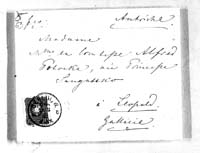 Autriche
Madame
Mme la comtesse Alfred
Potocka, née Princesse
Sanguszko
à Léopol
Gallicie